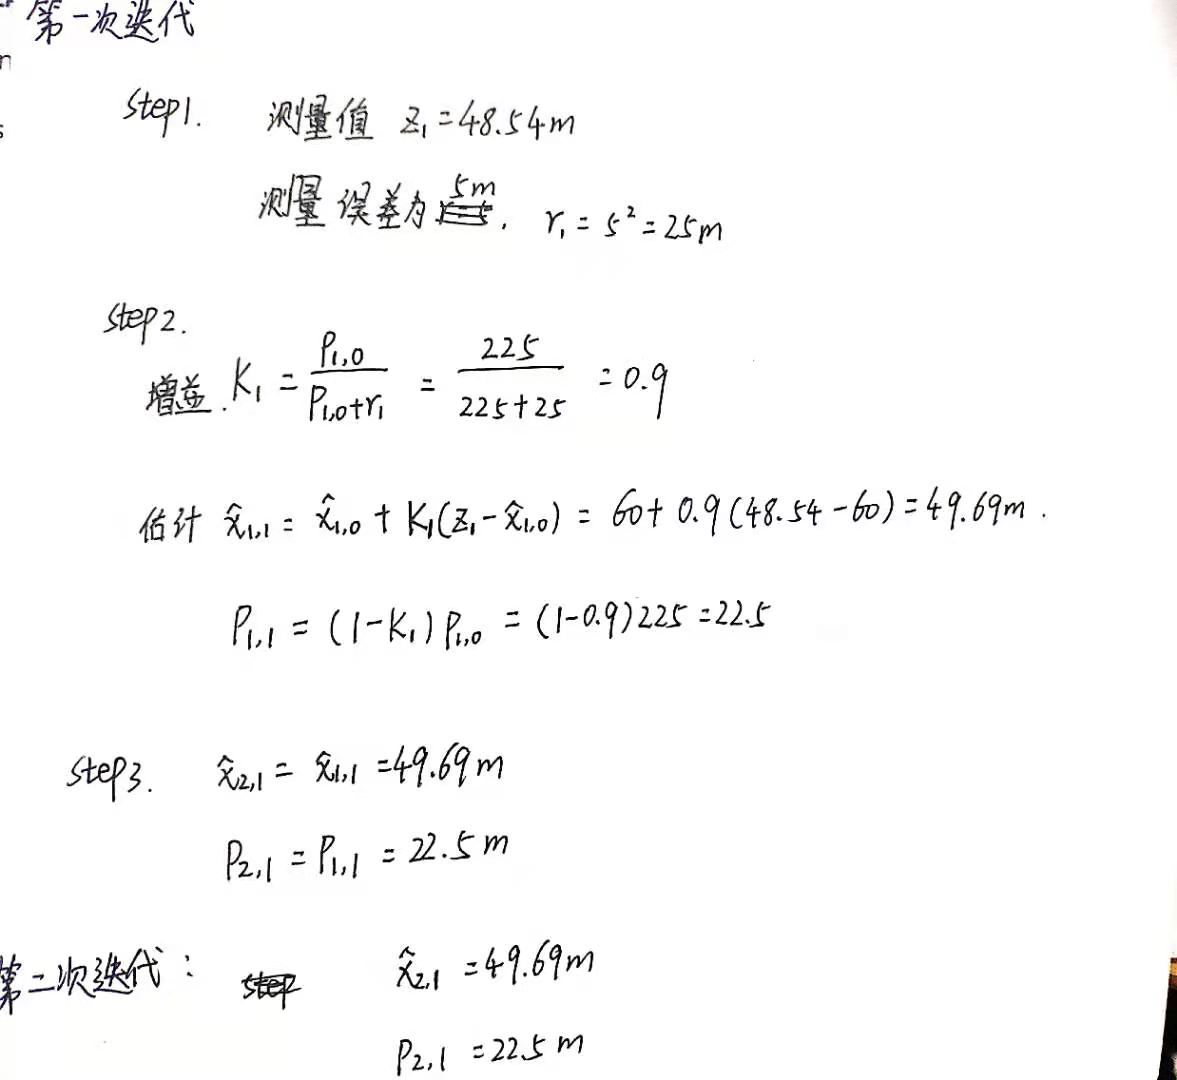 第一次迭代
n
s
Step1. 测量值 z₁=48.54m
测量误差为 5m. r₁=5²=25m
Step2.
增益. K₁ = P₁,₀/(P₁,₀+r₁) = 225/(225+25) = 0.9
估计 x̂₁,₁ = x̂₁,₀ + K₁(z₁-x̂₁,₀) = 60+0.9(48.54-60)=49.69m.
P₁,₁ = (1-K₁)P₁,₀ = (1-0.9)225=22.5
Step3. x̂₂,₁ = x̂₁,₁ =49.69m
P₂,₁ = P₁,₁ = 22.5m
第二次迭代: step x̂₂,₁ =49.69m
P₂,₁ =22.5m